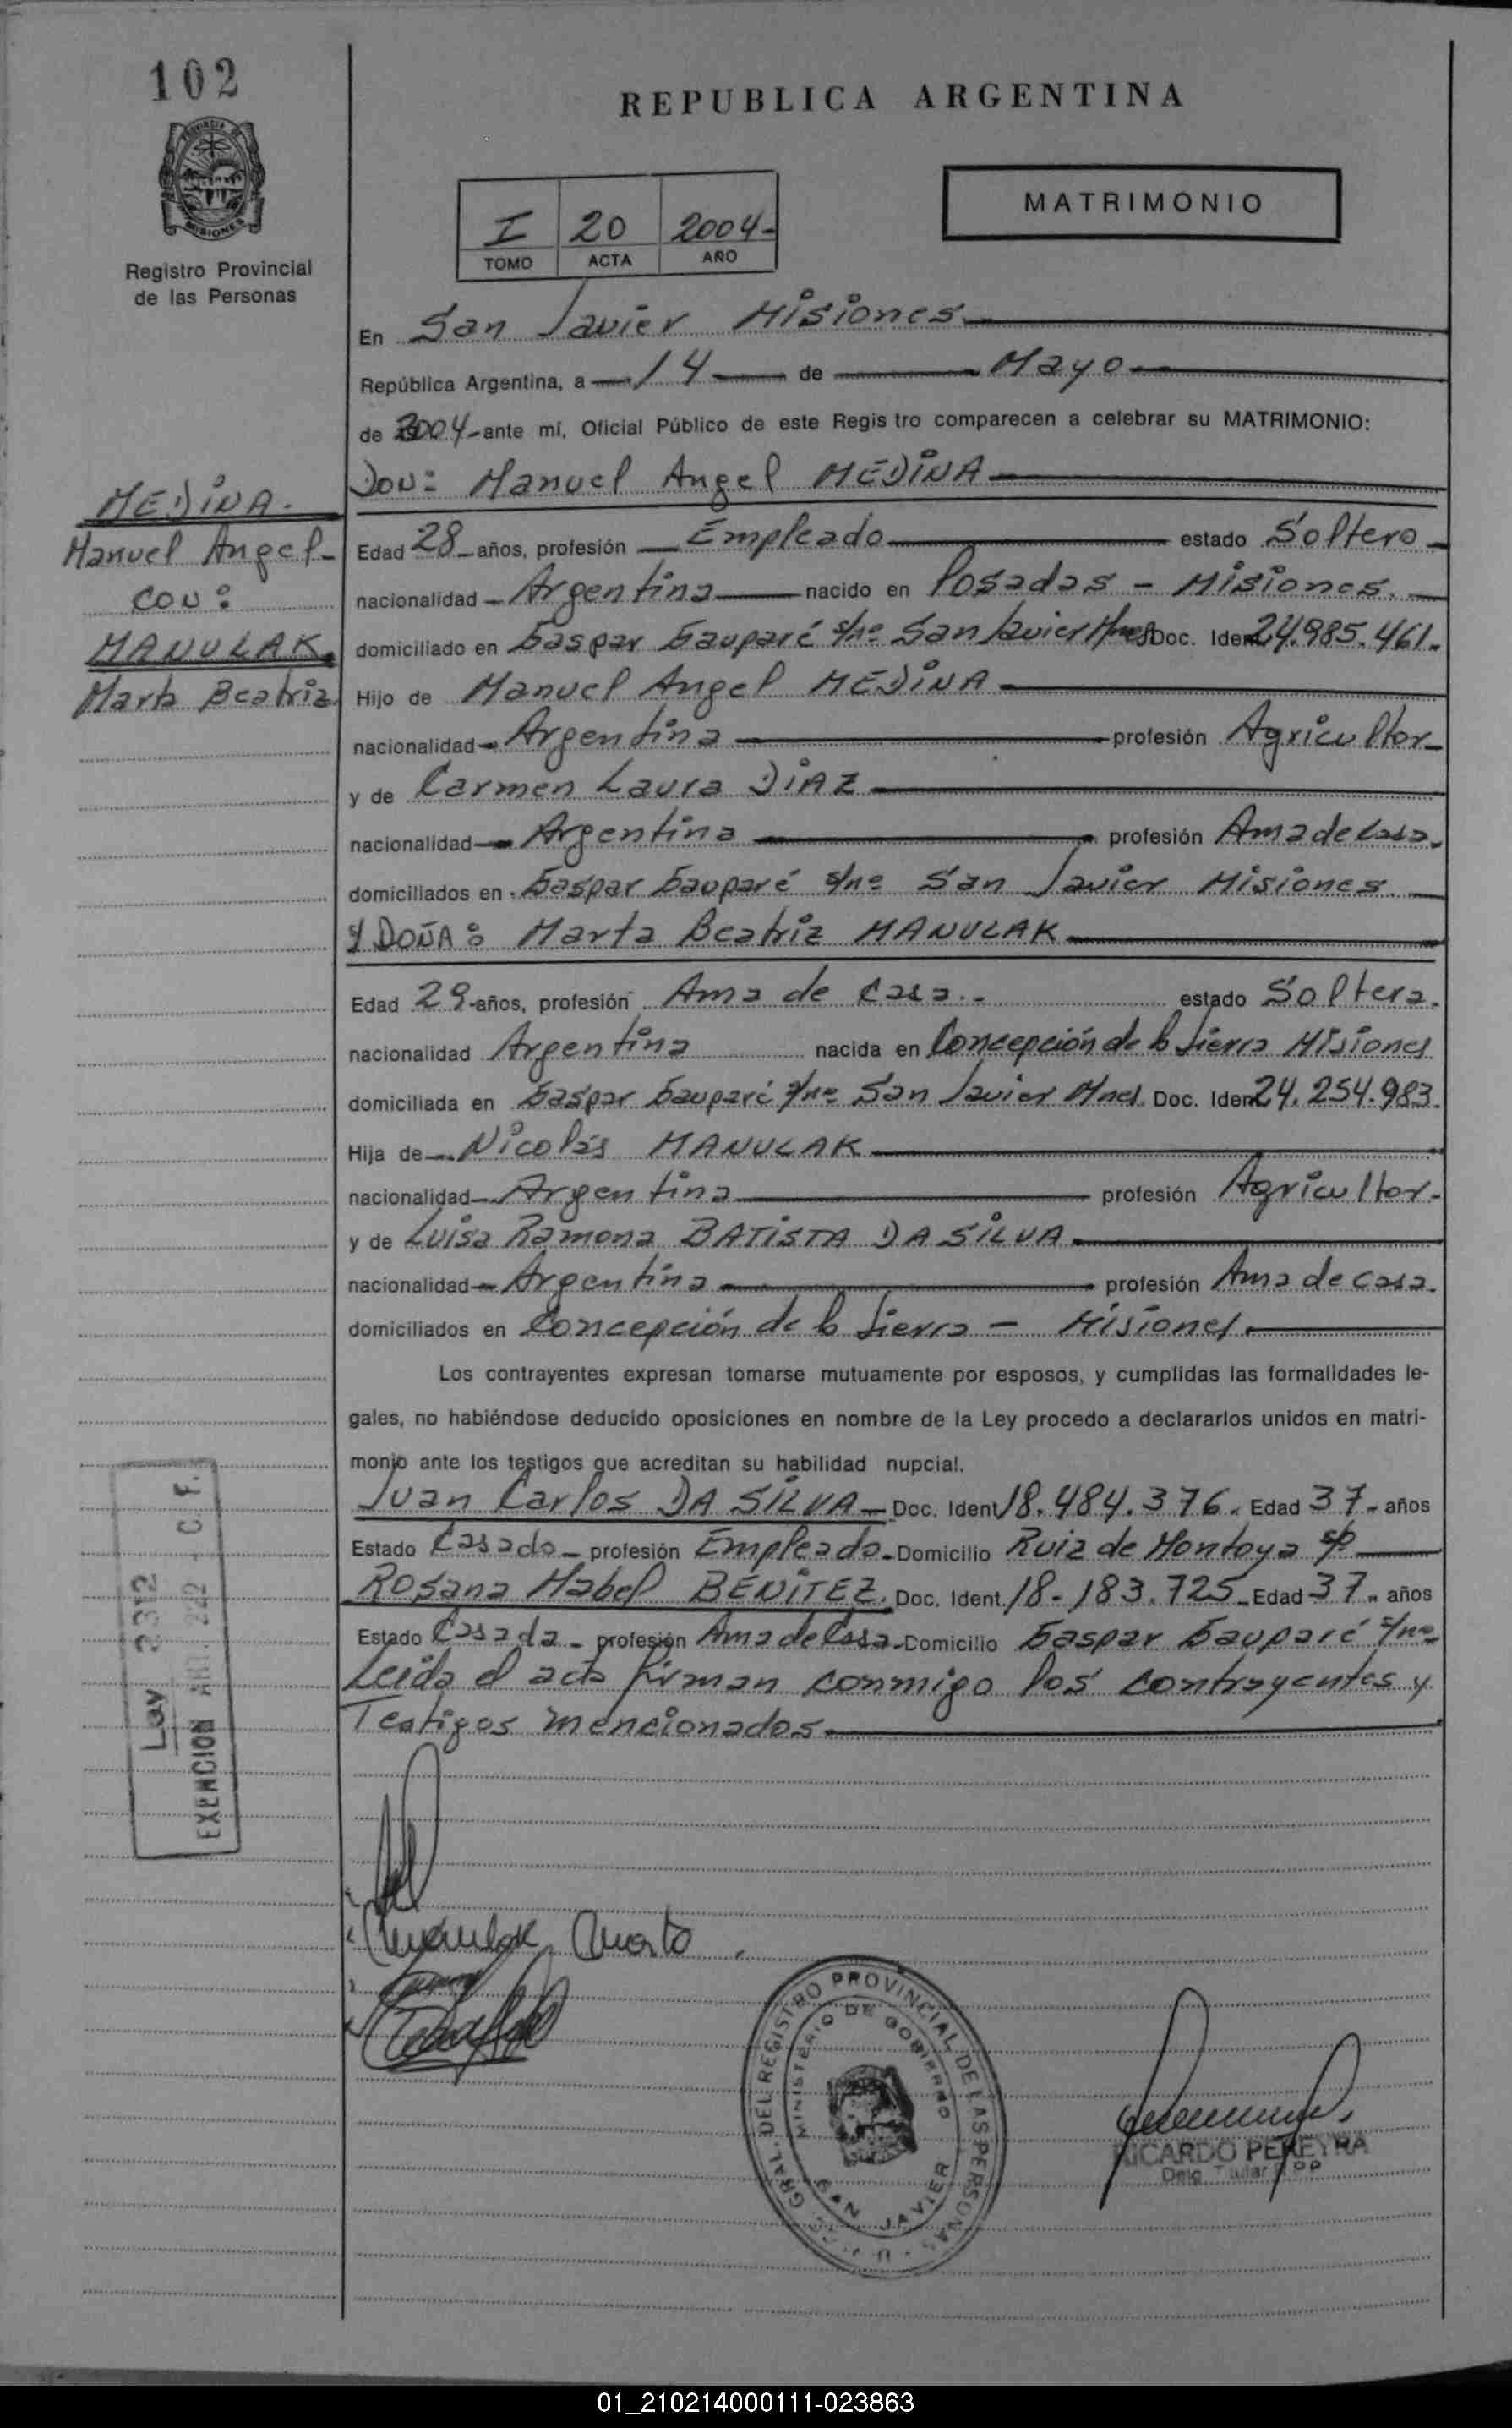 102
REPUBLICA ARGENTINA
MATRIMONIO
I 20 2004-
TOMO ACTA AÑO
PROVINCIA DE
MISIONES
Registro Provincial
de las Personas
En San Javier Misiones
República Argentina, a 14 de Mayo
de 2004 ante mí, Oficial Público de este Regis tro comparecen a celebrar su MATRIMONIO:
Don: Manuel Angel MEDINA
MEDINA.
Manuel Angel-
CON:
MANULAK
Marta Beatriz
Edad 28 años, profesión Empleado estado Soltero
nacionalidad Argentina nacido en Posadas - Misiones.
domiciliado en Gaspar Gauparé s/nº San Javier Mnes Doc. Iden 24.985.461.
Hijo de Manuel Angel MEDINA
nacionalidad Argentina profesión Agricultor
y de Carmen Laura DIAZ
nacionalidad Argentina profesión Ama de Casa.
domiciliados en Gaspar Gauparé s/nº San Javier Misiones
y DOÑA: Marta Beatriz MANULAK
Edad 29 años, profesión Ama de Casa.. estado Soltera.
nacionalidad Argentina nacida en Concepción de la Sierra Misiones
domiciliada en Gaspar Gauparé s/nº San Javier Mnes Doc. Iden 24.254.983.
Hija de Nicolás MANULAK
nacionalidad Argentina profesión Agricultor
y de Luisa Ramona BATISTA DA SILVA
nacionalidad Argentina profesión Ama de casa.
domiciliados en Concepción de la Sierra - Misiones.
Los contrayentes expresan tomarse mutuamente por esposos, y cumplidas las formalidades le-
gales, no habiéndose deducido oposiciones en nombre de la Ley procedo a declararlos unidos en matri-
monio ante los testigos que acreditan su habilidad nupcial.
Juan Carlos DA SILVA Doc. Ident 18.484.376. Edad 37 años
Estado Casado profesión Empleado Domicilio Ruiz de Montoya s/n
Rosana Mabel BENITEZ. Doc. Ident. 18.183.725 Edad 37 años
Estado Casada profesión Ama de Casa Domicilio Gaspar Gauparé s/nº
Leida el acta firman conmigo los contrayentes y
Testigos mencionados.
Ley 2312
EXENCION ART. 222 - C F.
Manulak Marta
GRAL. DEL REGISTRO PROVINCIAL DE LAS PERSONAS
MINISTERIO DE GOBIERNO
SAN JAVIER
RICARDO PEREYRA
Titular
01_210214000111-023863